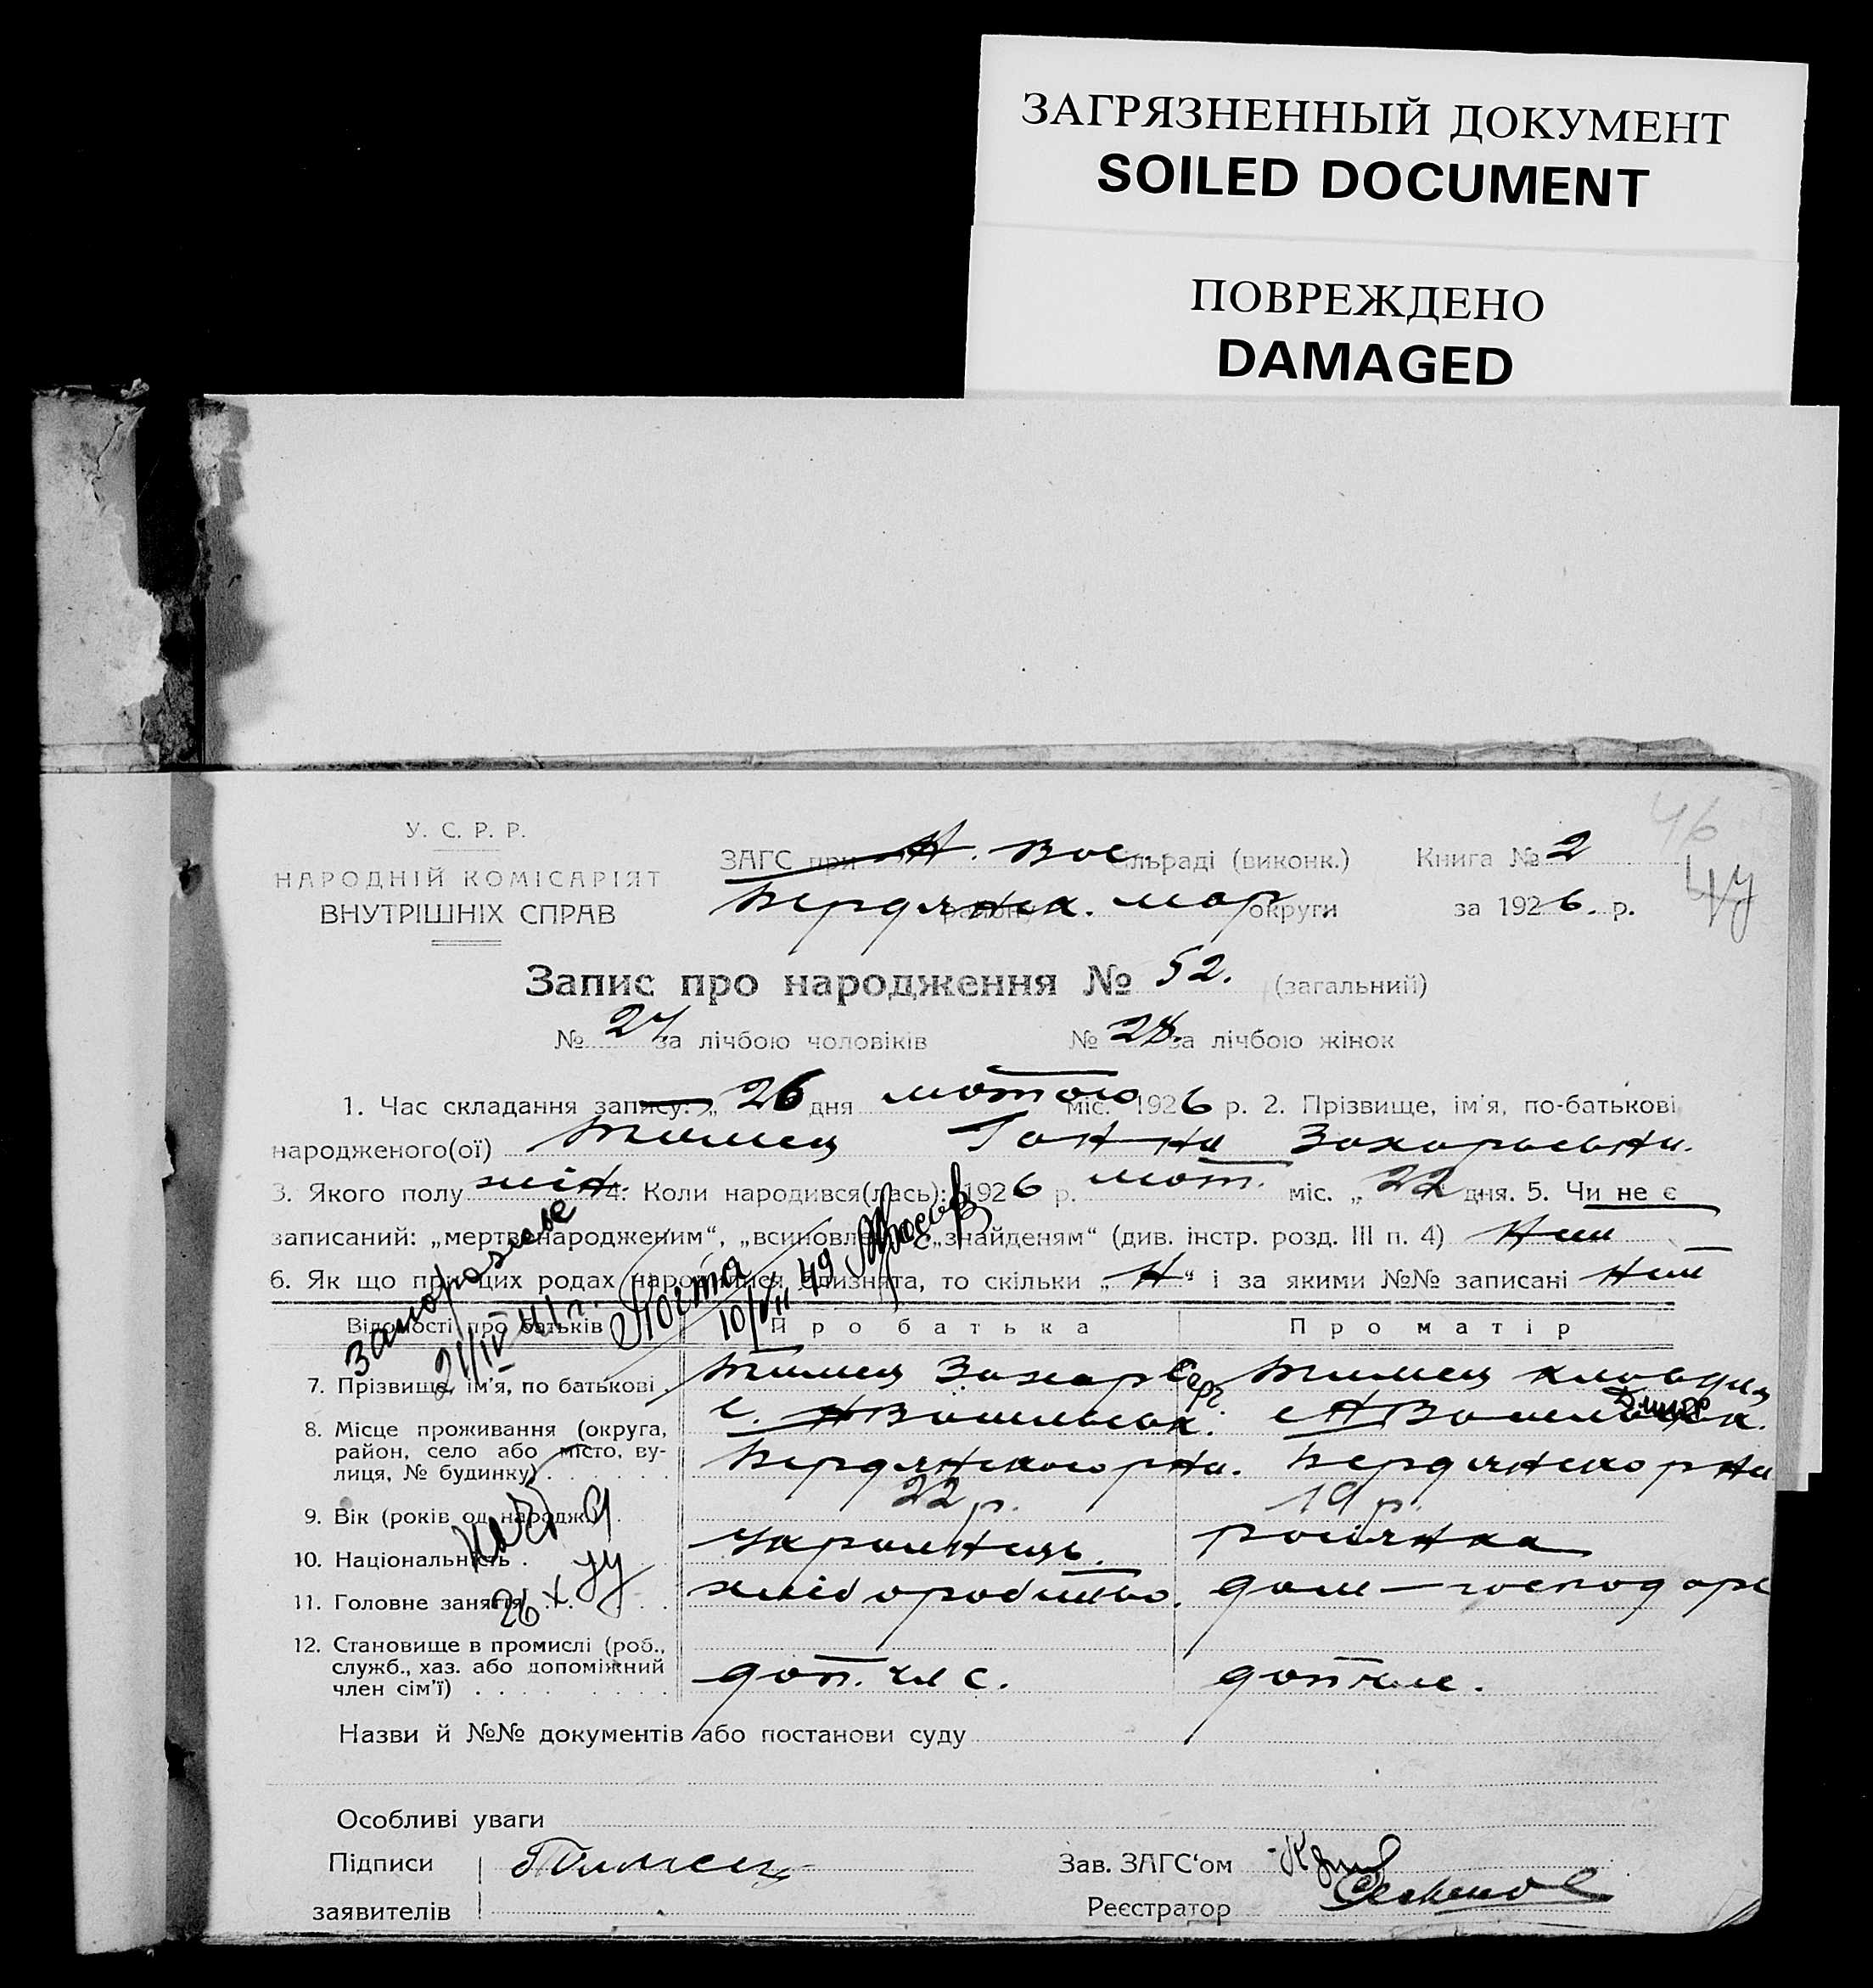 ЗАГРЯЗНЕННЫЙ ДОКУМЕНТ
SOILED DOCUMENT
ПОВРЕЖДЕНО
DAMAGED
46
У. С. Р. Р.
НАРОДНІЙ КОМІСАРІЯТ
ВНУТРІШНІХ СПРАВ
ЗАГС при Н. Вас. сільраді (виконк.) Книга № 2
Бердянск. району Мар. округи за 1926. р.
Запис про народження № 52. (загальний)
№ 24 за лічбою чоловіків № 28. за лічбою жінок
1. Час складання запису: „ 26 дня лютого міс. 1926 р. 2. Прізвище, ім'я, по-батькові
народженого(ої) Тимец Ганна Захарьевна.
3. Якого полу жін. 4. Коли народився(лась): 1926 р. лют. міс. „ 22 дня. 5. Чи не є
записаний: „мертвонародженим“, „всиновленим“, „знайденям“ (див. інстр. розд. III п. 4) Ні
6. Як що при цих родах народилися близнята, то скільки „ Н “ і за якими №№ записані
Запорожье
21/IV 41 г.
Почта
10/VII 49
Відомості про батьків Про батька Про матір
7. Прізвище, ім'я, по батькові Тимец Захар Серг. Тимец Клавдия Дмитр
8. Місце проживання (округа,
район, село або місто, ву-
лиця, № будинку) с. НВасильевк. с НВасильевк.
Бердянского рна. Бердянско рна
9. Вік (років од народж.) 22 р. 19 р.
10. Національність українець. росіянка
11. Головне заняття хліборобство. дом — господар
26 X
12. Становище в промислі (роб.,
служб., хаз. або допоміжний
член сім'ї) доп. чл с. доп чл с.
Назви й №№ документів або постанови суду
Особливі уваги
Підписи Тимец Зав. ЗАГС'ом
заявителів Реєстратор